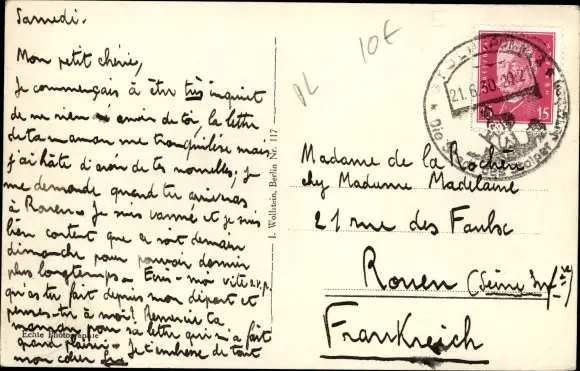 Samedi.
Mon petit chérie,
Je commençais à être très inquiet
de ne rien avoir de toi, la lettre
de ta maman me tranquilise mais
j'ai hâte d'avoir de tes nouvelles; je
me demande quand tu arriveras
à Rouen. Je suis vanné et je suis
bien content que ce soit demain
dimanche pour pouvoir dormir
plus longtemps. Écris-moi vite
qu'as tu fait depuis mon départ et
penses-tu à moi? Remercie ta
maman pour sa lettre qui m'a fait
grand plaisir. Je t'embrasse de tout
mon cœur
Echte Photographie
J. Wollstein, Berlin Nr. 117
DL
10€
21.6.30.20-21
15
Madame de la Rochère
chez Madame Madelaine
21 rue des Faulx
Rouen (Seine Infre)
Frankreich